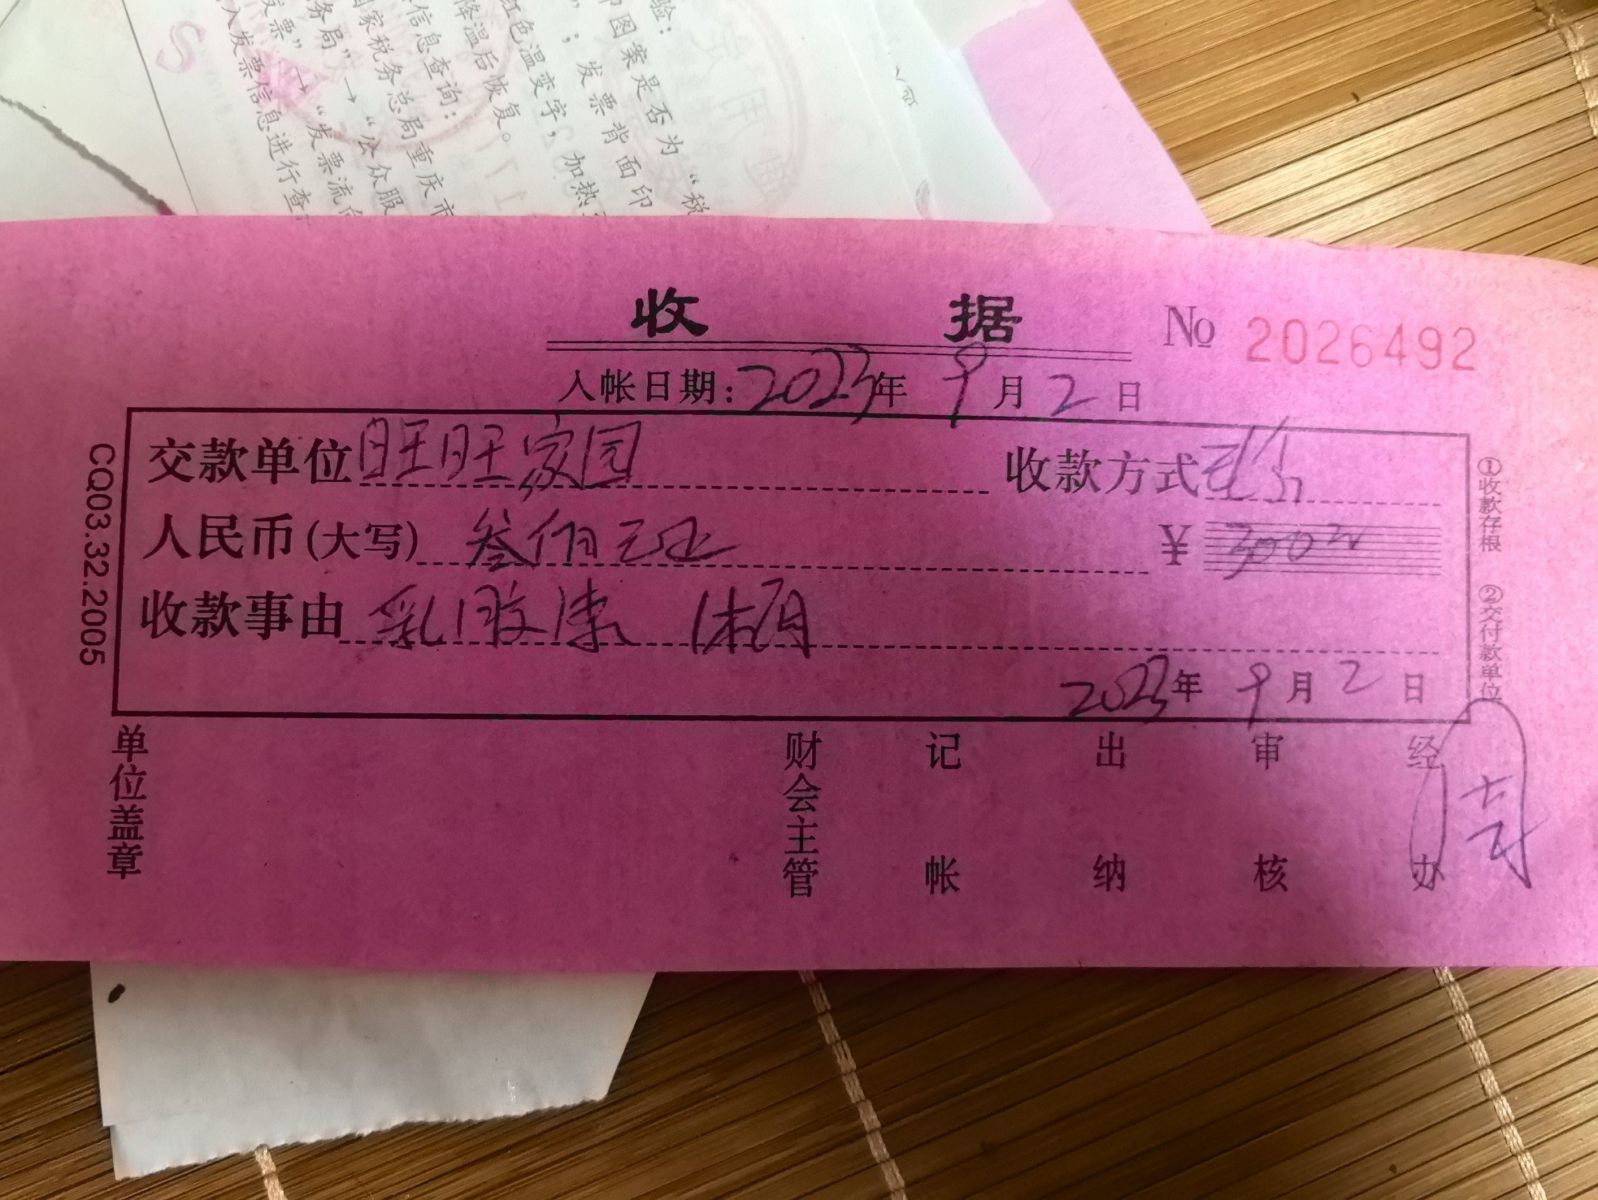 验:
印图案是否为“税
”；发票背面印
红色温变字，加热
降温后恢复。
信息查询:
国家税务总局重庆市
务局”→“公众服
发票”→“发票流向
入发票信息进行查
收 据
№ 2026492
入帐日期: 2023年 9月 2日
交款单位 旺旺家园 收款方式 现金
人民币(大写) 叁佰元正 ¥ 300元
收款事由 乳胶漆
2023年 9月 2日
CQ03.32.2005
①收款存根 ②交付款单位
单位盖章 财会主管 记帐 出纳 审核 经办